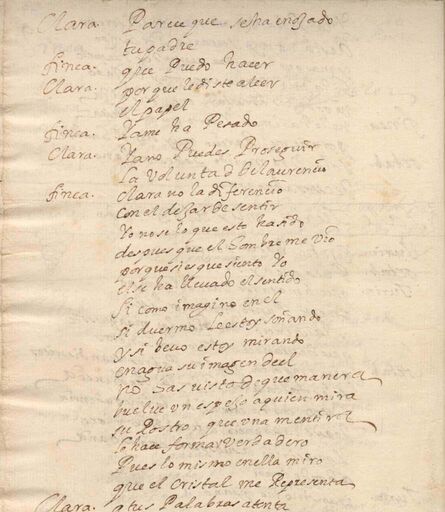 Clara. Parece que se ha enojado
tu padre
finea. que Puedo hacer
Clara. porque le diste a leer
el papel
finea. Ya me ha Pesado
Clara. Ya no Puedes Proseguir
la voluntad de laurencio
finea. Clara no la diferencio
con el dejar de sentir
Yo no se lo que esto ha sido
despues que el hombre me vio
porque si es que siento Yo
el se ha llevado el sentido
si como imagino en el
si duermo le estoy soñando
y si bevo estoy mirando
en agua su imagen del
no has vista de que manera
buelve un espejo a quien mira
su Rostro, que una mentira
lo hace forma verdadero
Pues lo mismo en ella miro
que el Cristal me Representa
Clara. a tus Palabras atenta